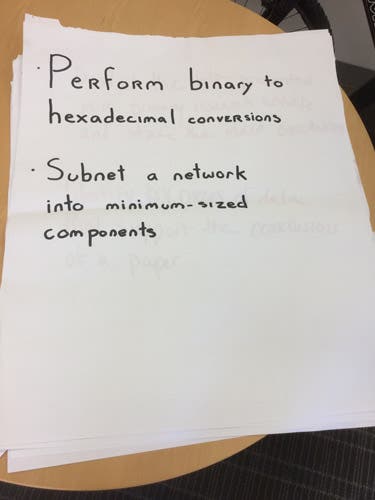 · Perform binary to
hexadecimal conversions
· Subnet a network
into minimum-sized
components